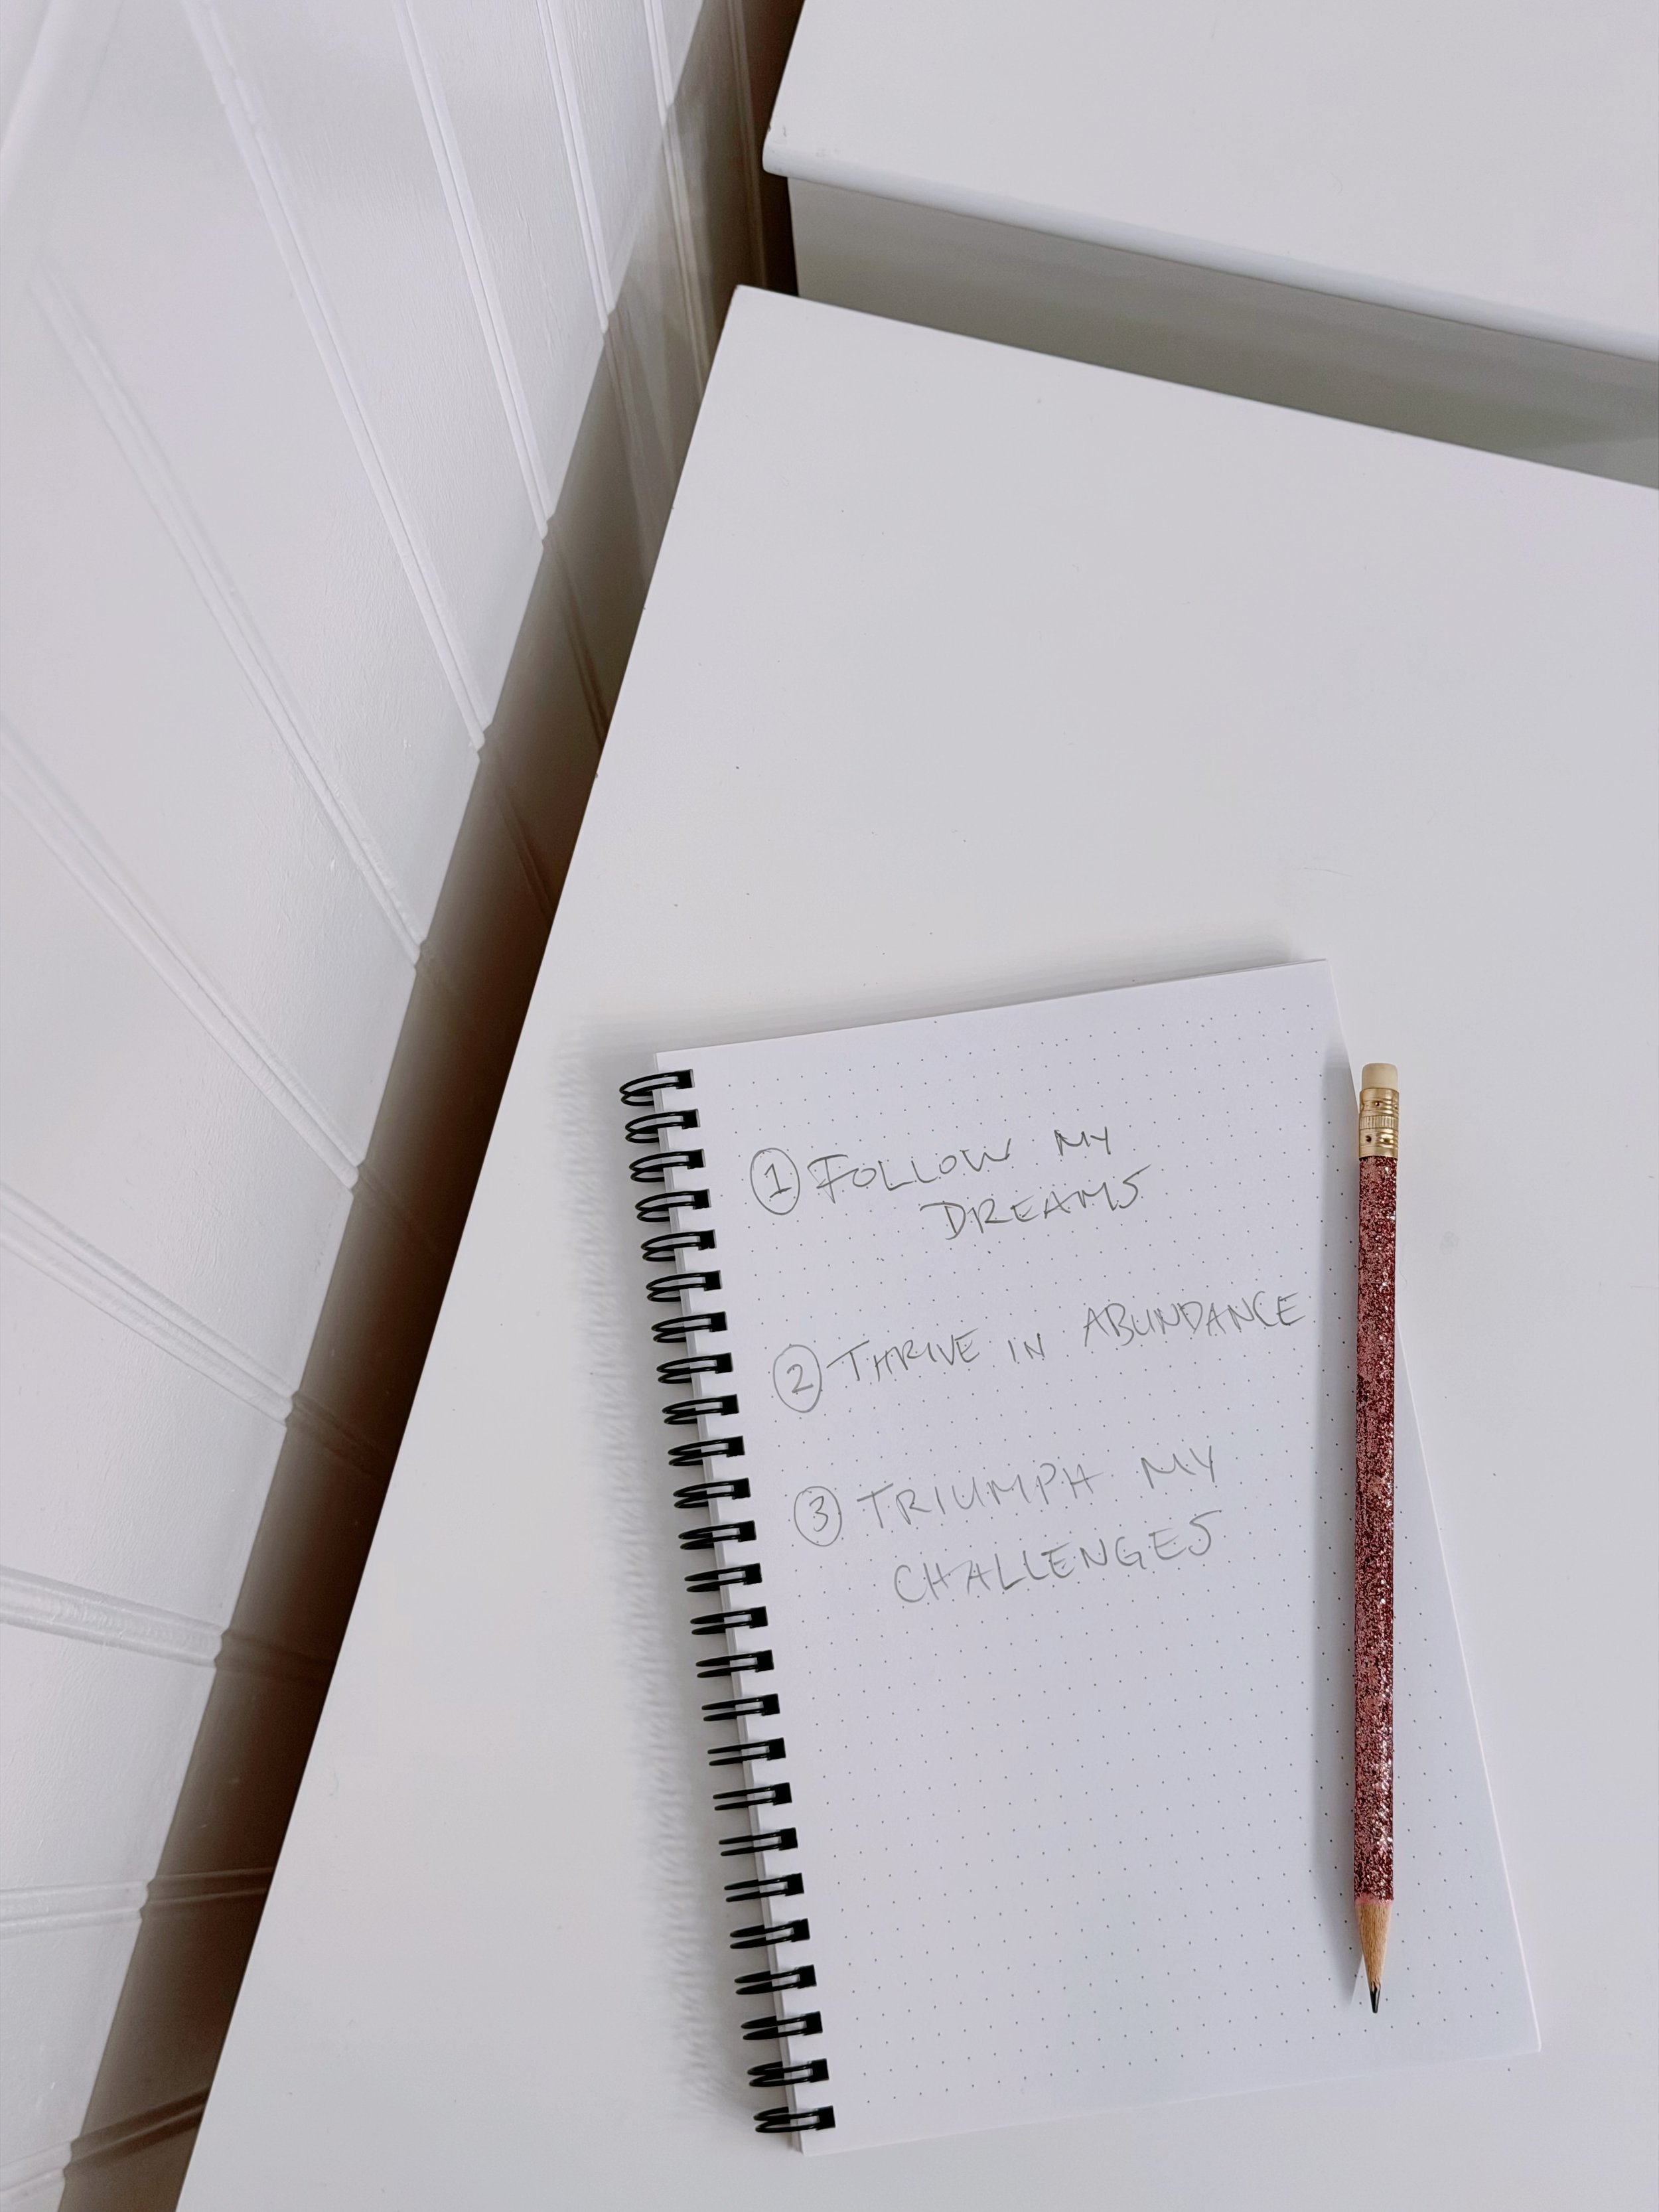 ① FOLLOW MY
DREAMS
② THRIVE IN ABUNDANCE
③ TRIUMPH MY
CHALLENGES